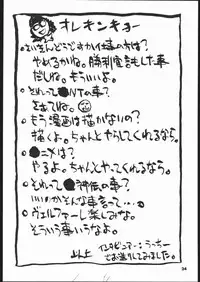 オレキンキョー
やめるかね。勝利宣言した事
だしね。もういいよ。
●それって●NTの事？
さあてね。
●もう漫画は描かないの？
描くよ。ちゃんとやらしてくれるなら。
●ニメは？
やるよ。ちゃんとやってくれるなら。
●それって●外伝の事？
いいのかそんな事言って…。
●ヴェルファーレ楽しみな。
そういう事いうなよ。
インタビュアー：うっちー
でお送りしてみました。